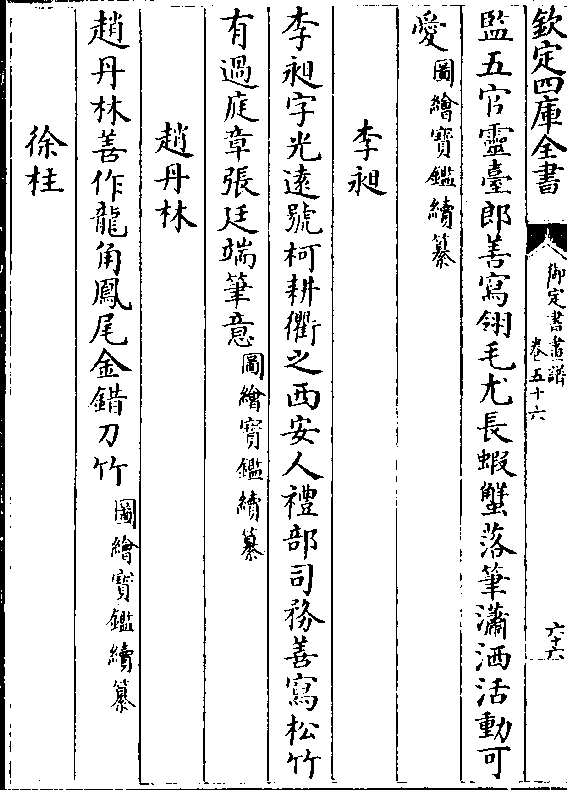 欽定四庫全書
御定書畫譜
卷五十六
六十六
監五官靈臺郎善寫翎毛尤長蝦蟹落筆瀟洒活動可
愛圖繪寶鑑續纂
李昶
李昶字光遠號柯耕衢之西安人禮部司務善寫松竹
有過庭章張廷端筆意圖繪寶鑑續纂
趙丹林
趙丹林善作龍角鳳尾金錯刀竹圖繪寶鑑續纂
徐柱